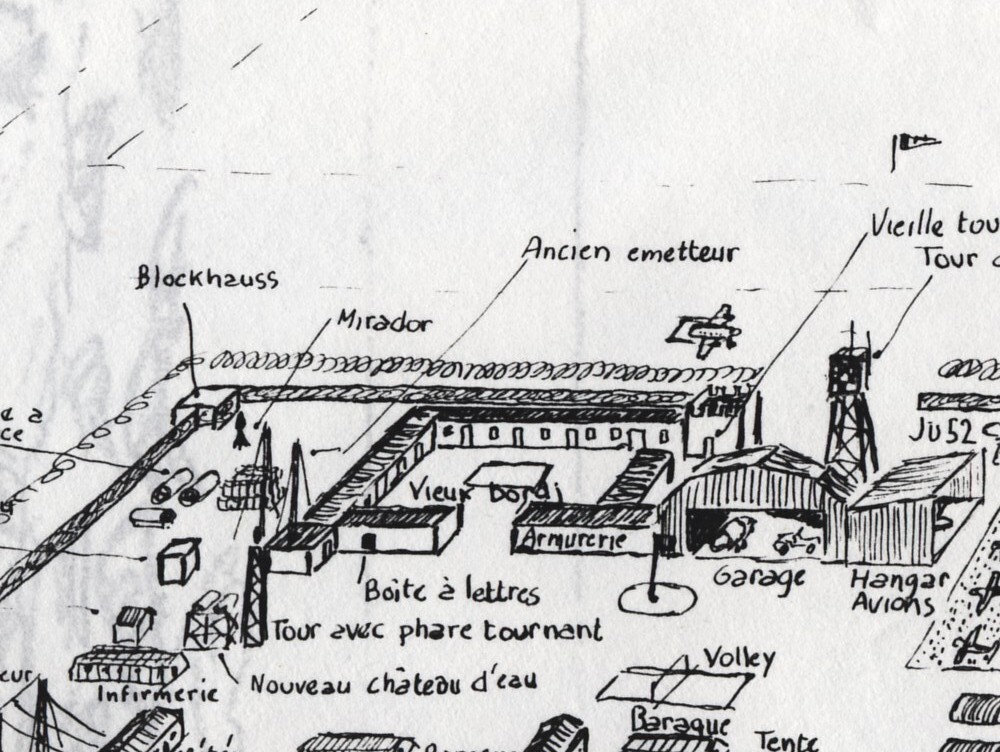 Vieille
Tour
Ancien emetteur
Blockhauss
Mirador
Ju52
Vieux bordj
Armurerie
Garage
Hangar
Avions
Boîte à lettres
Tour avec phare tournant
Volley
Nouveau château d'eau
Infirmerie
Baraque
Tente